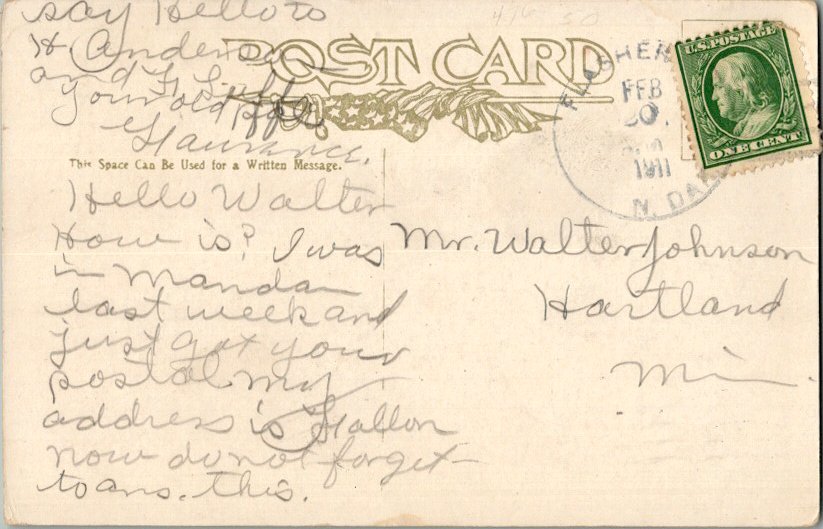 say Hello to
H. Anders
and G.
your old
POST CARD
This Space Can Be Used for a Written Message.
Hello Walter
How is? I was
in Mandan
last week and
just got your
postal my
address is Fallon
now do not forget
to ans. this.
FLASHER
FEB
1911
N. DAK
U.S. POSTAGE
ONE CENT
Mr. Walter Johnson
Hartland
Min.